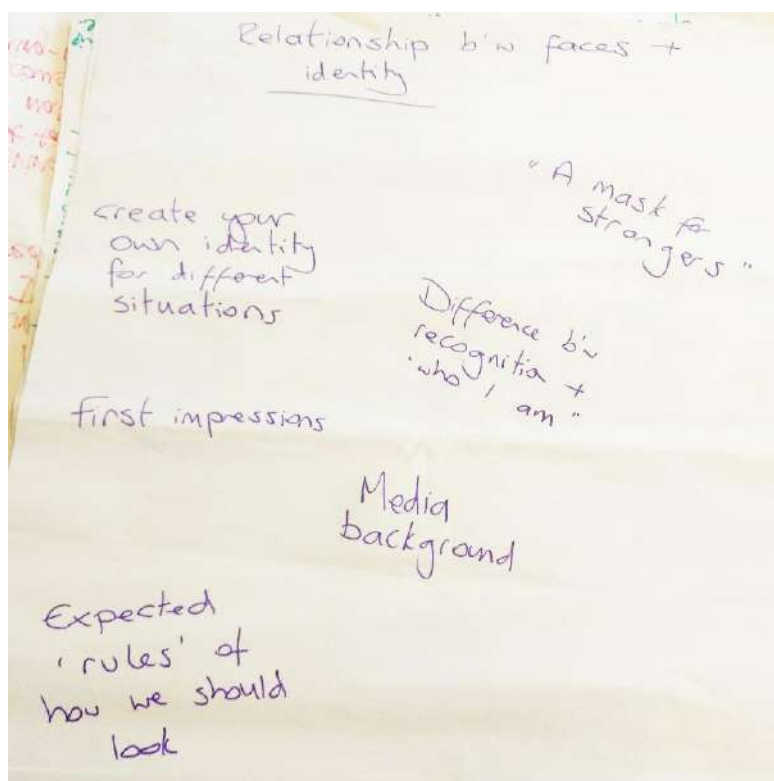 Relationship b'w faces +
identity
"A mask for
strangers"
create your
own identity
for different
situations
Difference b'w
recognition +
"who I am"
first impressions
Media
background
Expected
'rules' of
how we should
look